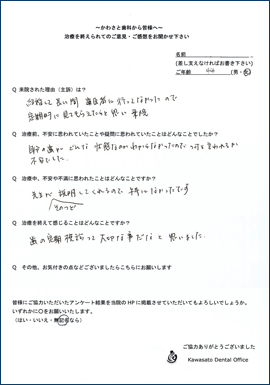 〜かわさと歯科から皆様へ〜
治療を終えられてのご意見・ご感想をお聞かせ下さい
名前
(差し支えなければお書き下さい)
ご年齢 44 (男・女)
Q 来院された理由(主訴)は?
長い間 歯医者に行ってなかったので
定期的に見てもらえたらと思い 来院
Q 治療前、不安に思われていたことや疑問に思われていたことはどんなことでしたか?
自分の歯がどんな状態なのかわからなかったので 何を言われるか
不安でした。
Q 治療中、不安や不満に思われたことはどんなことですか?
先生が説明してくれるので 特になかったです
そのつど
Q 治療を終えて感じることはどんなことですか?
歯の定期検診って大切な事だなと思いました。
Q その他、お気付きの点などございましたらこちらにお願いします
皆様にご協力いただいたアンケート結果を当院の HP に掲載させていただいてもよろしいでしょうか。
いずれかに○をお願いいたします。
(はい・いいえ・無記名なら)
ご協力ありがとうございました
Kawasato Dental Office